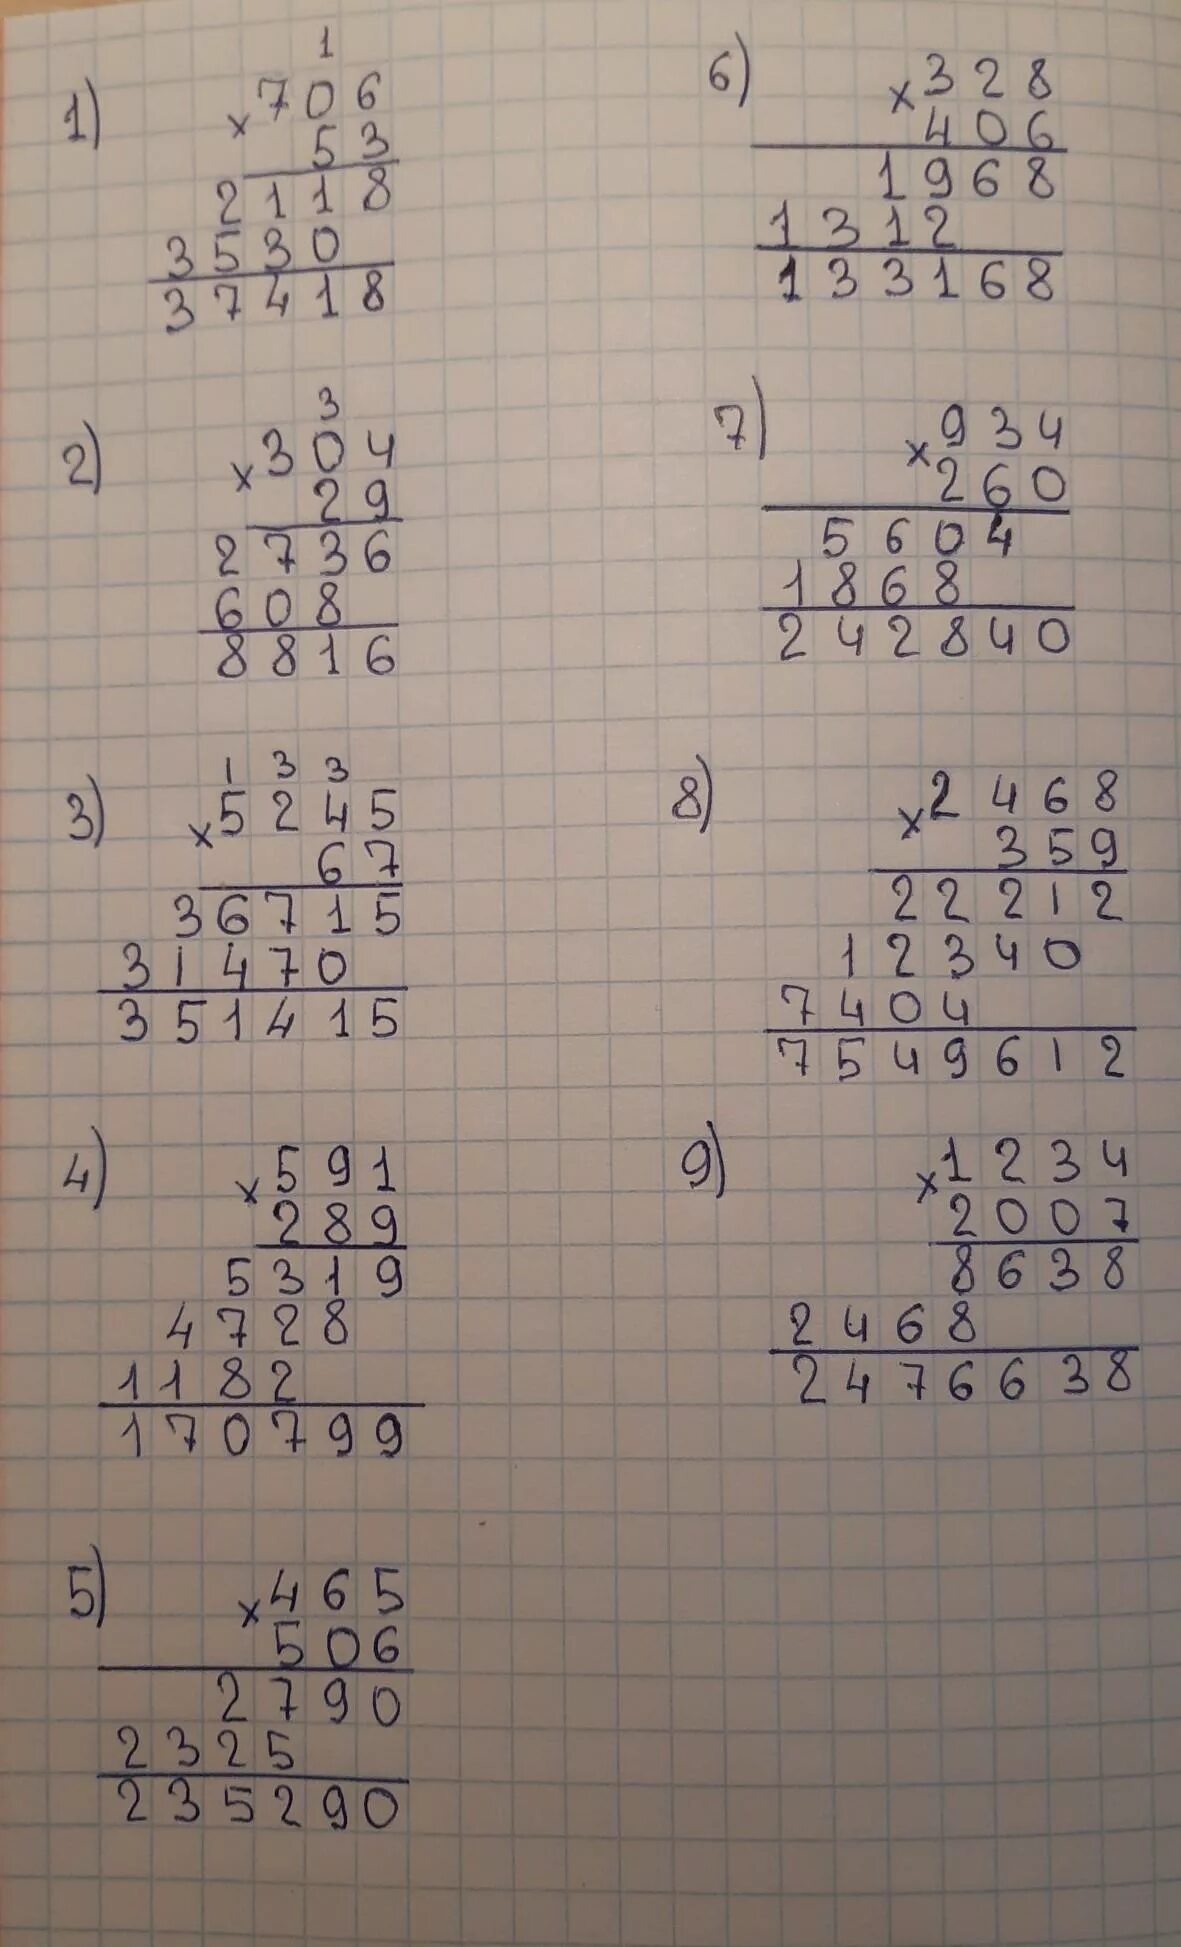 1)
1
× 706
53
2118
3530
37418
2)
3
× 304
29
2736
608
8816
3)
1 3 3
× 5245
67
36715
31470
351415
4)
× 591
289
5319
4728
1182
170799
5)
× 465
506
2790
2325
235290
6)
× 328
406
1968
1312
133168
7)
× 934
260
5604
1868
242840
8)
× 2468
359
22212
12340
7404
7549612
9)
× 1234
2007
8638
2468
2476638